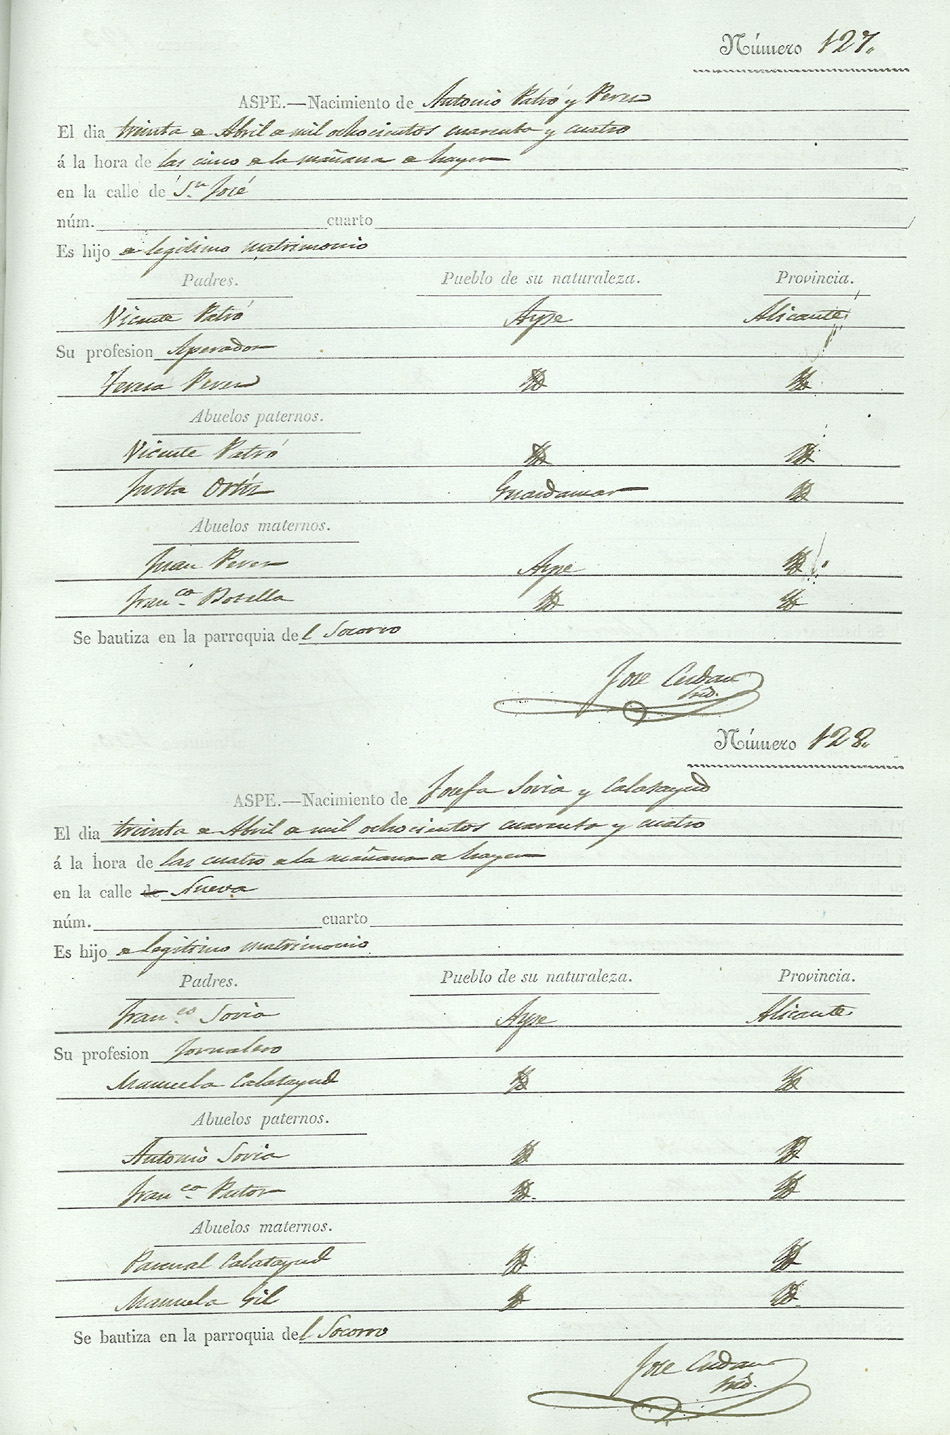 Número 127.
ASPE.—Nacimiento de Antonio Patró y Perez
El dia treinta de Abril de mil ochocientos cuarenta y cuatro
á la hora de las cinco de la mañana de hayer
en la calle de Sn José
núm. cuarto
Es hijo de legitimo matrimonio
Padres. Pueblo de su naturaleza. Provincia.
Vicente Patró Aspe Alicante
Su profesion Aperador
Teresa Perez Yd Yd
Abuelos paternos.
Vicente Patró Yd Yd
Justa Ortiz Guardamar Yd
Abuelos maternos.
Juan Perez Aspe Yd
Franca Botella Yd Yd
Se bautiza en la parroquia del Socorro
Jose
Número 128.
ASPE.—Nacimiento de Josefa Soria y Calatayud
El dia treinta de Abril de mil ochocientos cuarenta y cuatro
á la hora de las cuatro de la mañana de hayer
en la calle de Nueva
núm. cuarto
Es hijo de legitimo matrimonio
Padres. Pueblo de su naturaleza. Provincia.
Franco Soria Aspe Alicante
Su profesion Jornalero
Manuela Calatayud Yd Yd
Abuelos paternos.
Antonio Soria Yd Yd
Franca Pastor Yd Yd
Abuelos maternos.
Pascual Calatayud Yd Yd
Manuela Gil Yd Yd
Se bautiza en la parroquia del Socorro
Jose